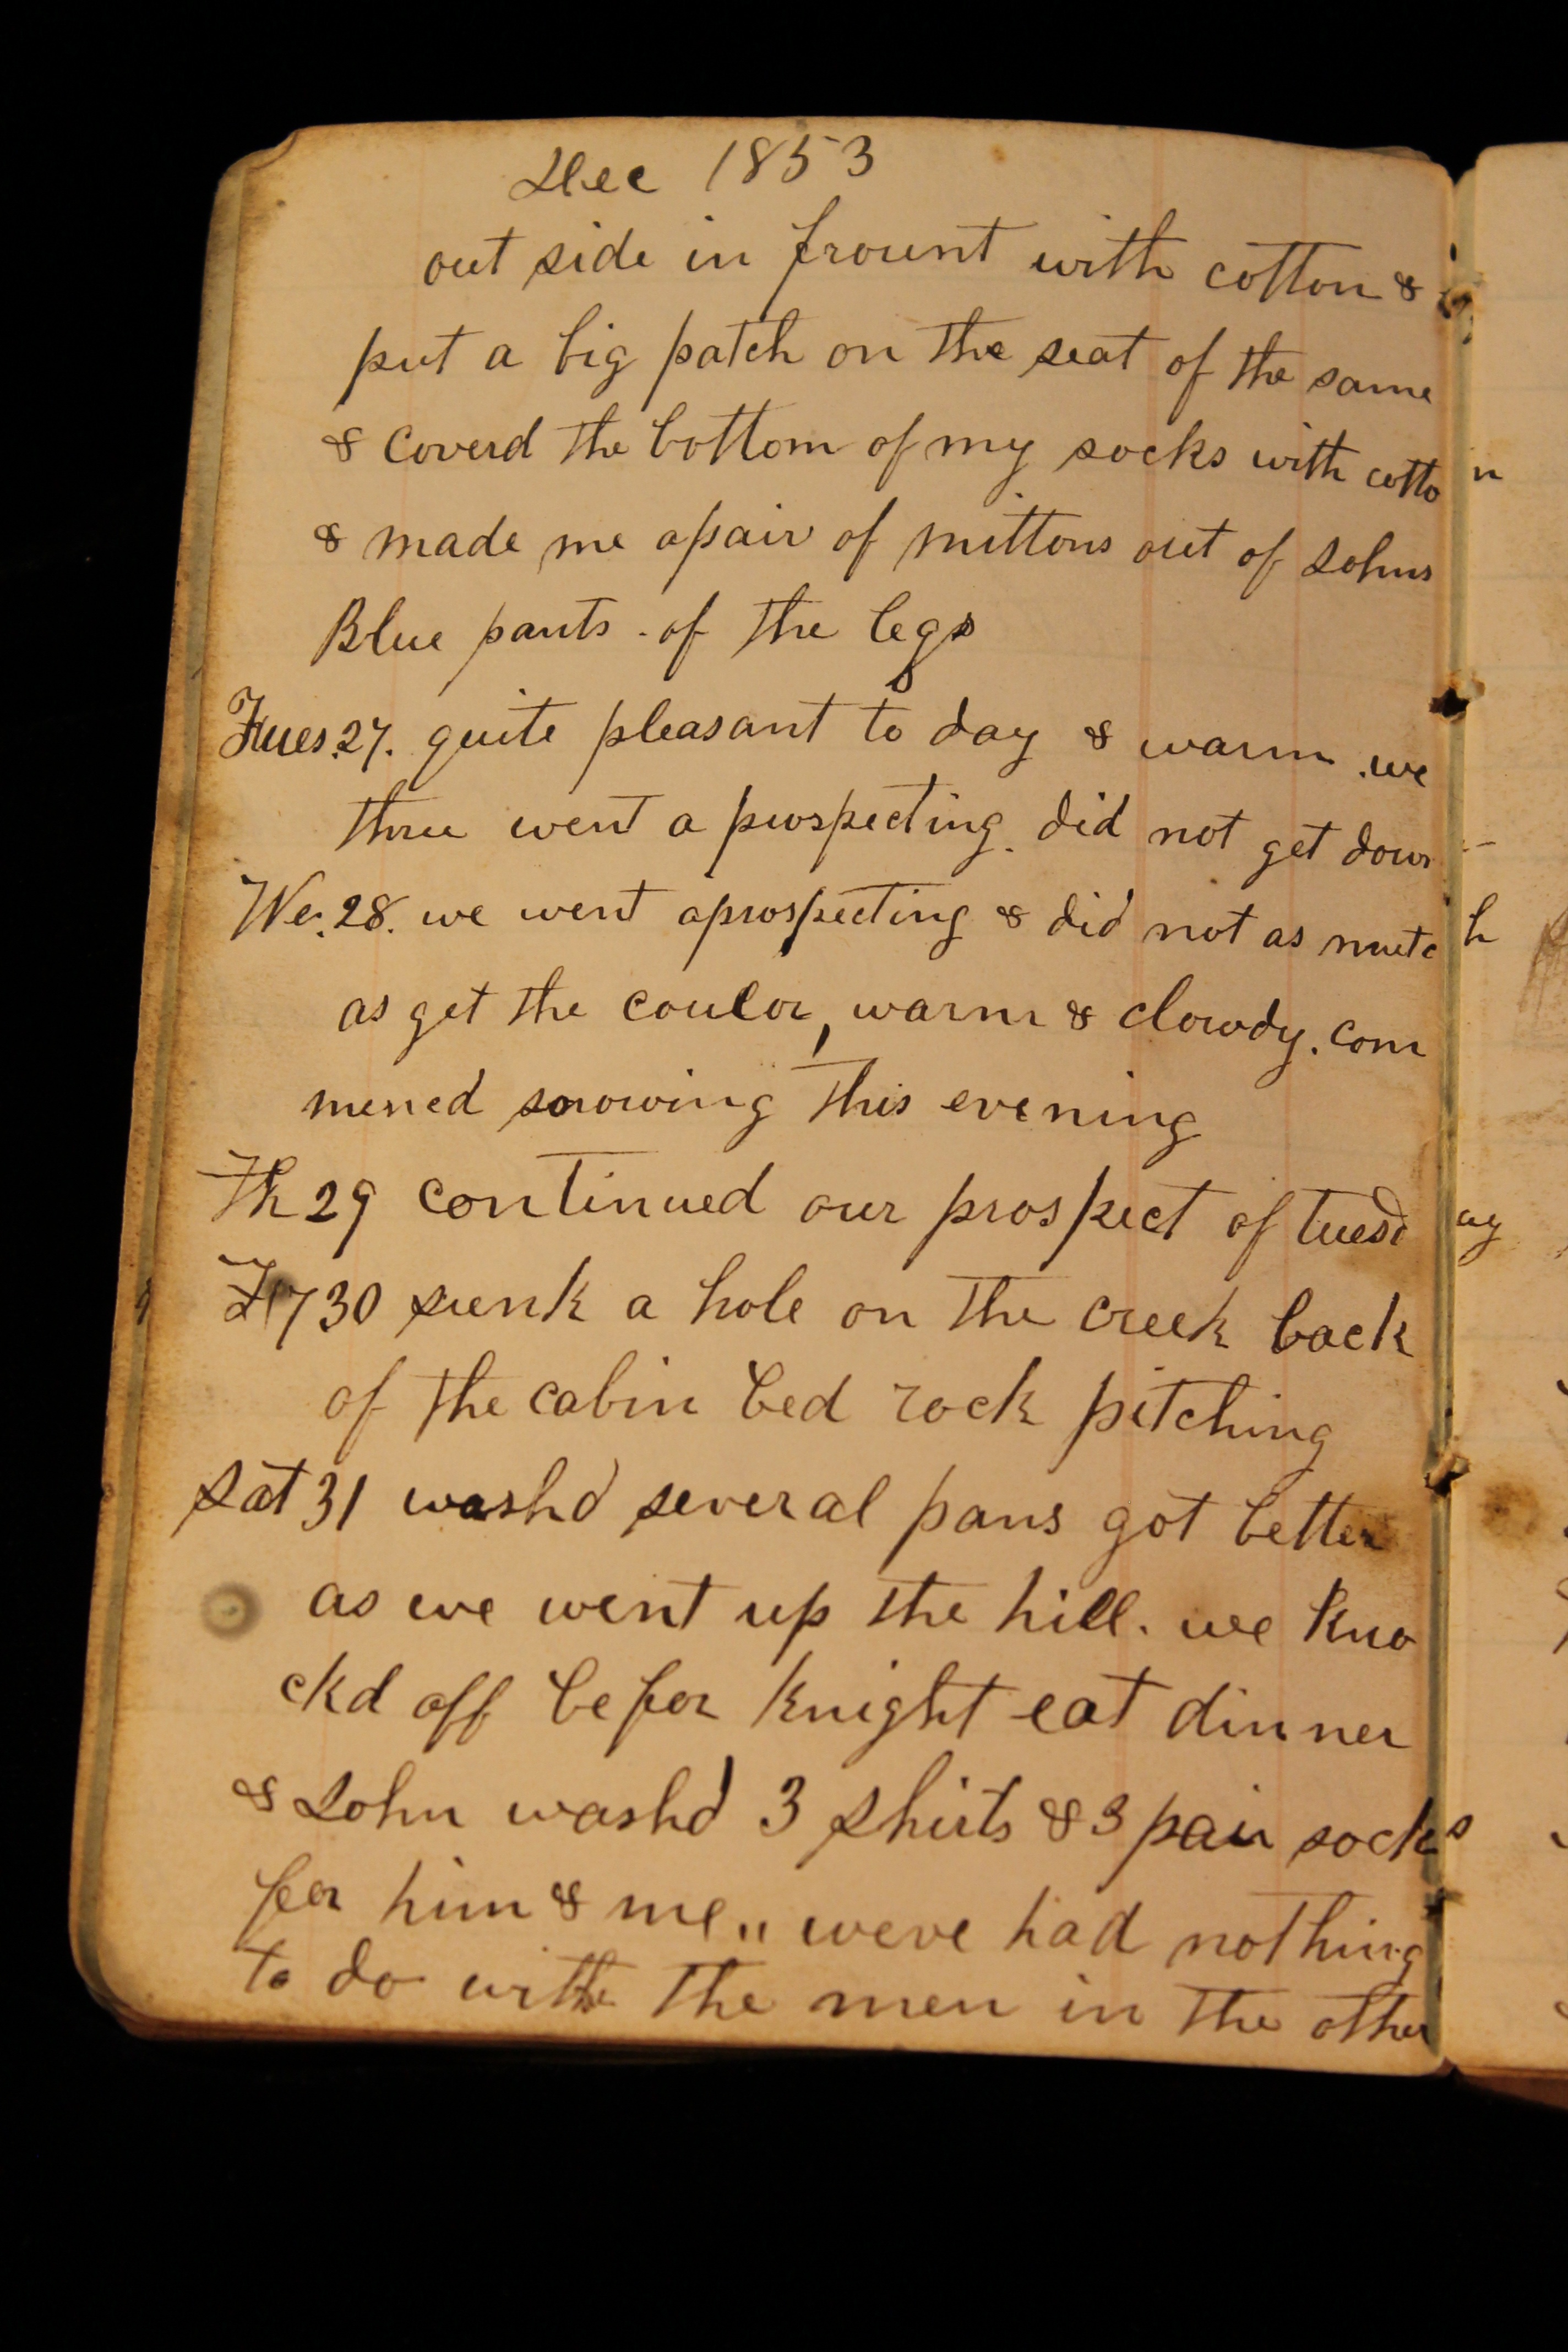 Dec 1853
out side in frount with cotton &
put a big patch on the seat of the same
& coverd the bottom of my socks with cotton
& made me apair of mittons out of Johns
Blue pants . of the legs
Tues. 27. quite pleasant to day & warm . we
three went a prospecting. did not get down
We. 28. we went aprospecting & did not as mutch
as get the coulor, warm & clowdy. com
mened snowing this evening
Th 29 continued our prospect of tuesday
30 sunk a hole on the creek back
of the cabin bed rock pitching
Sat 31 washd several pans got better
as we went up the hill. we kno
ckd off befor knight eat dinner
& John washd 3 shirts & 3 pair socks
for him & me ,, weve had nothing
to do with the men in the other